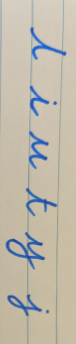 l i u t y j